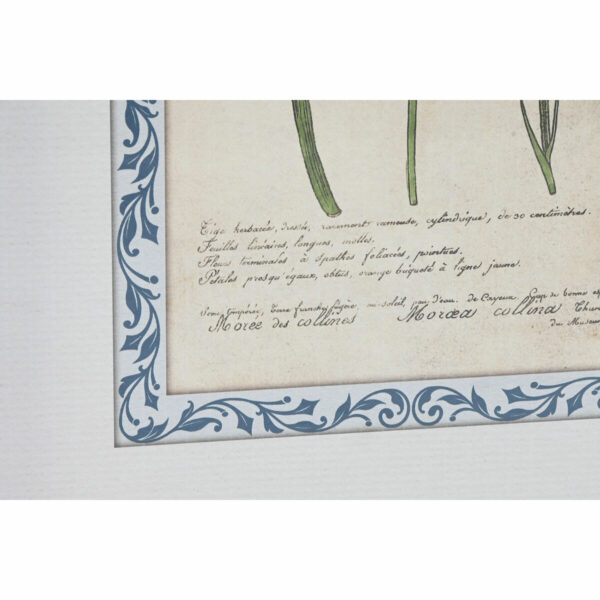 Tige herbacée, dressée, rarement rameuse, cylindrique, de 30 centimètres.
Feuilles linéaires, longues, molles.
Fleurs terminales à spathes foliacés, pointues.
Pétales presqu'égaux, obtus, orange briqueté à ligne jaune.
tempérée, Terre franche légère, au soleil, peu d'eau. de Cayeux. bonne
Morée des collines Moræa collina Thun
du Museum